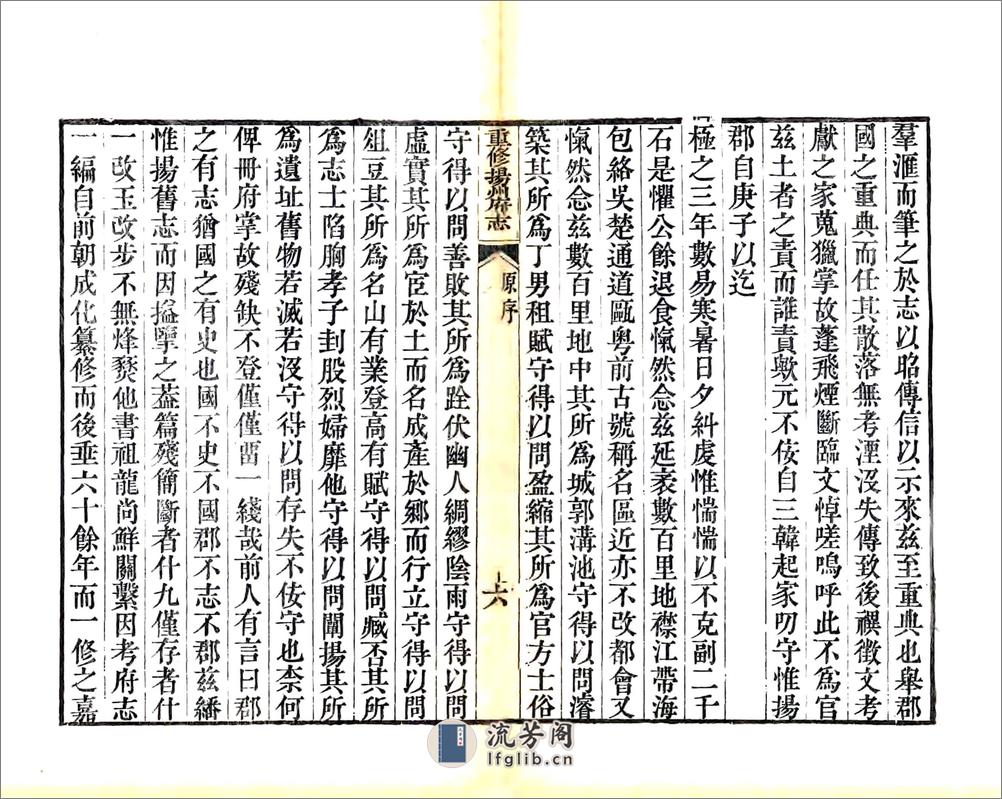 羣滙而筆之於志以昭傳信以示來茲至重典也舉郡
國之重典而任其散落無考湮沒失傳致後禩徵文考
獻之家蒐獵掌故蓬飛煙斷臨文悼嗟嗚呼此不爲官
茲土者之責而誰責歟元不佞自三韓起家叨守惟揚
郡自庚子以迄
極之三年數易寒暑日夕糾虔惟惴惴以不克副二千
石是懼公餘退食愾然念茲延袤數百里地襟江帶海
包絡吳楚通道甌粤前古號稱名區近亦不改都會又
愾然念茲數百里地中其所爲城郭溝池守得以問濬
築其所爲丁男租賦守得以問盈縮其所爲官方士俗
重修揚州府志
原序
十六
守得以問善敗其所爲跧伏幽人綢繆陰雨守得以問
虛實其所爲宦於土而名成產於郷而行立守得以問
俎豆其所爲名山有業登高有賦守得以問臧否其所
爲志士陷胸孝子刲股烈婦靡他守得以問闡揚其所
爲遺址舊物若滅若沒守得以問存失不佞守也柰何
俾冊府掌故殘缺不登僅僅畱一綫哉前人有言曰郡
之有志猶國之有史也國不史不國郡不志不郡茲繙
惟揚舊志而因搤擥之葢篇殘簡斷者什九僅存者什
一改玉改步不無烽燹他書祖龍尚鮮關繫因考府志
一編自前朝成化纂修而後垂六十餘年而一修之嘉
流芳阁
lfglib.cn